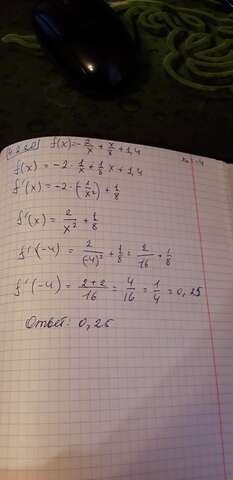 f(x)=-2/x+x/8+1,4
f(x) = -2·1/x+1/8x+1,4
f'(x)=-2·(-1/x²)+1/8
f'(x)=2/x²+1/8
f'(-4)=2/(-4)²+1/8=2/16+1/8
f'(-4)=2+2/16=4/16=1/4=0,25
Ответ: 0,25